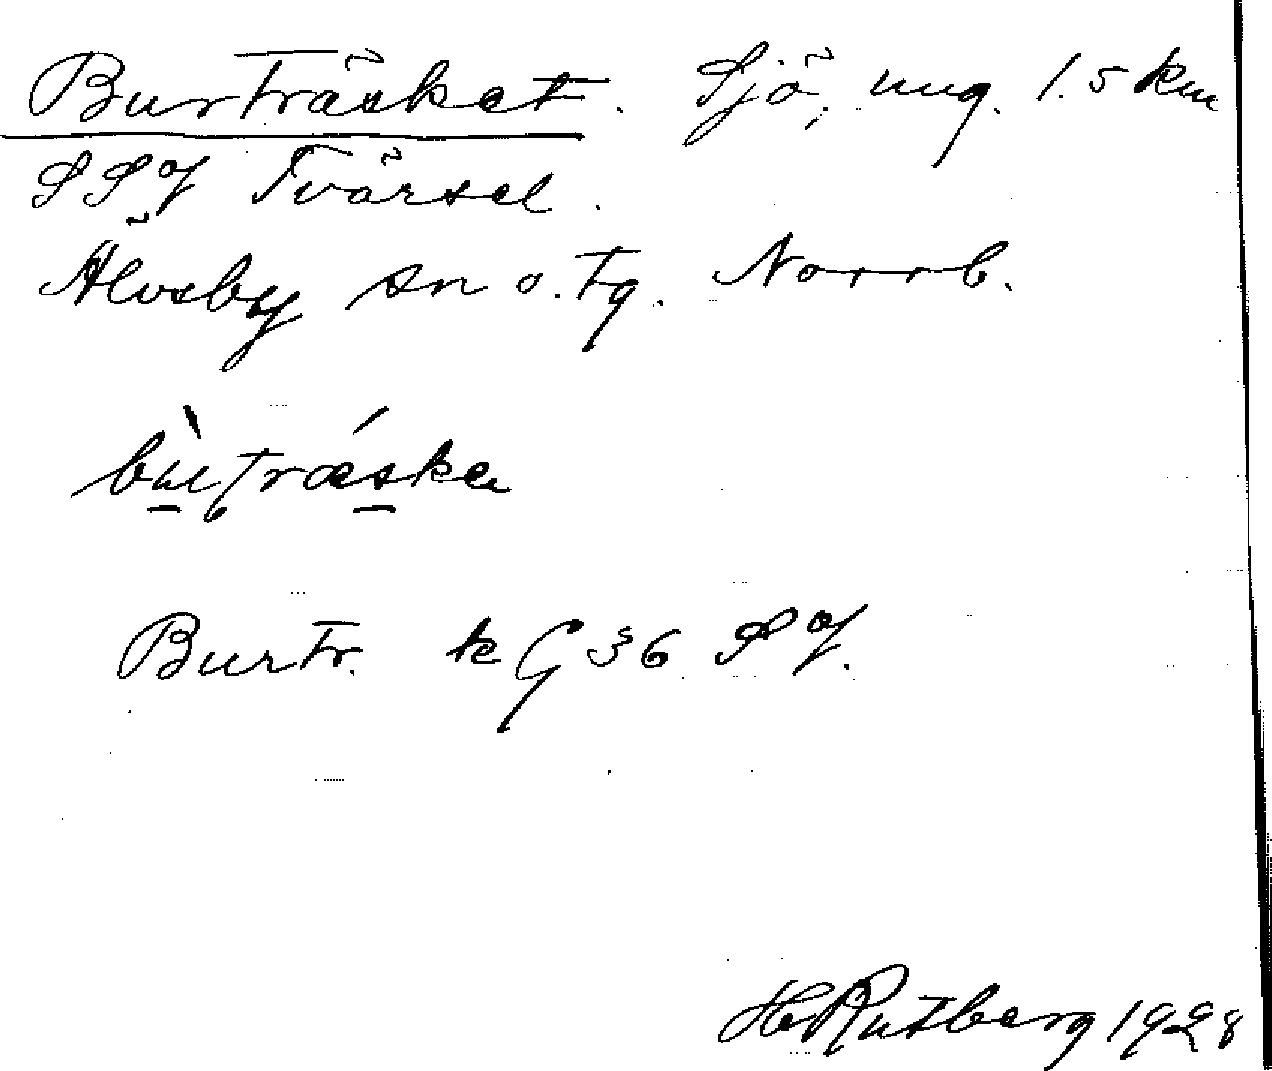 Burträsket. Sjö, ung. 1.5 km
SSO Tvärsel.
Älvsby sn o. tg. Norrb.
Burtr. kG 36 SO.
H Rutberg 1928